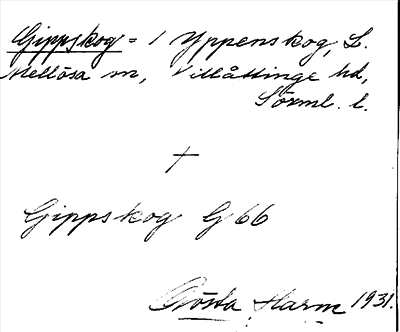 Gippskog = 1 Yppenskog, L.
Mellösa sn, Villåttinge hd,
Sörml. l.
+
Gippskog G 66
Gösta Harm 1931.